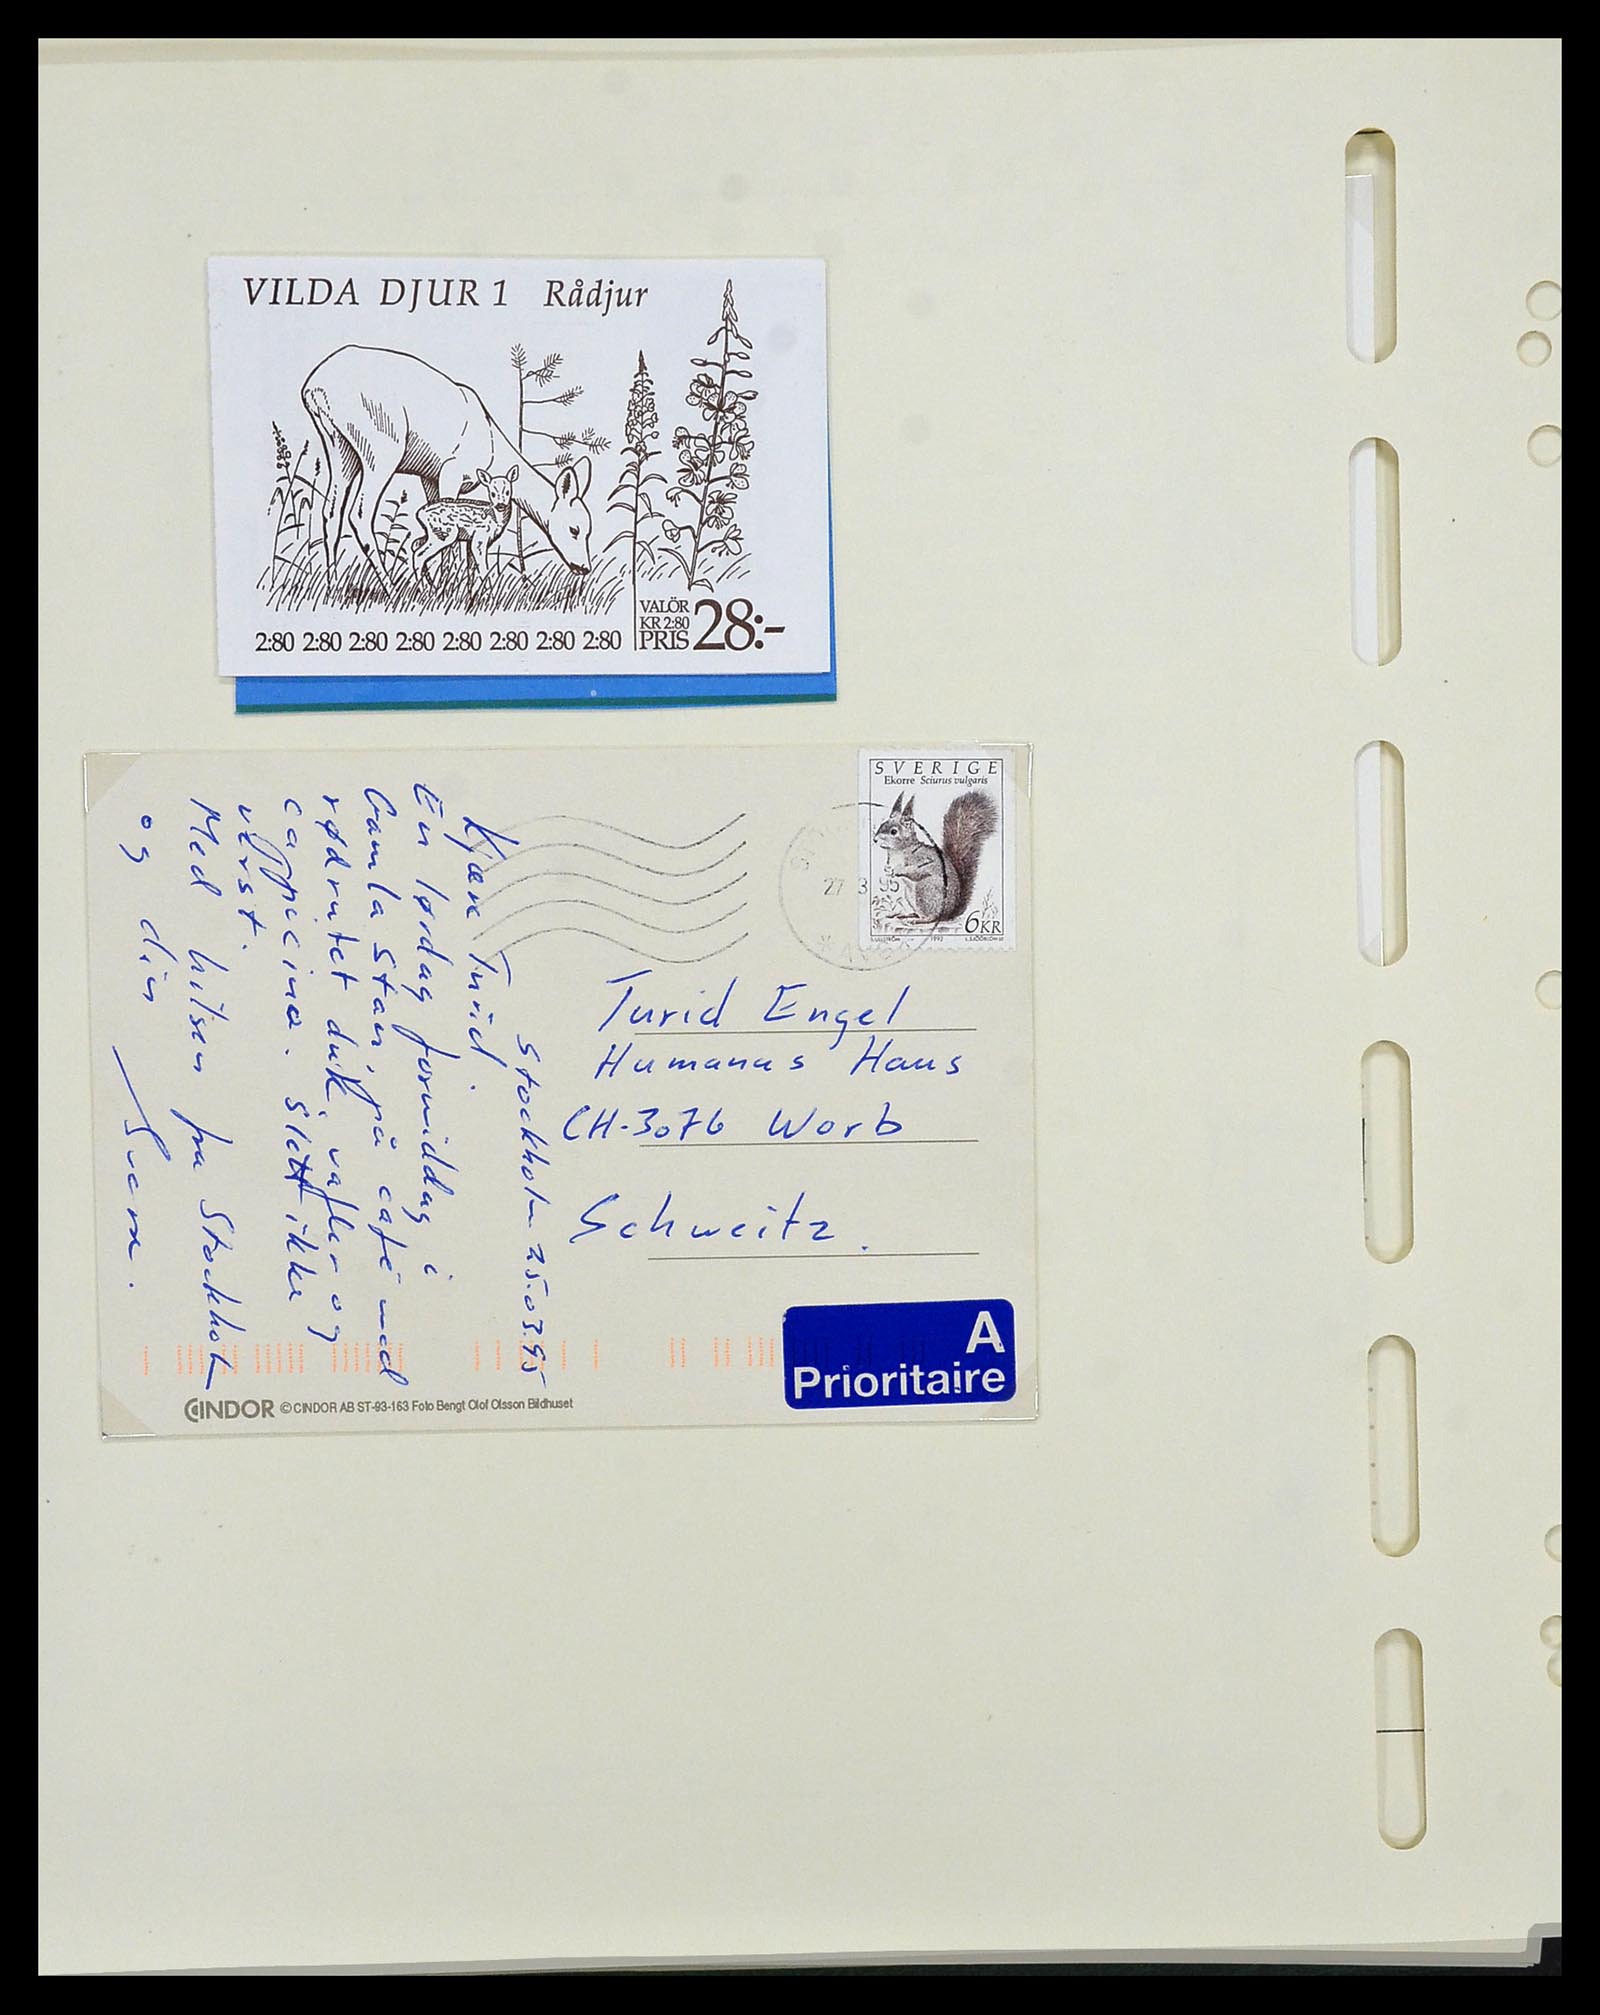 VILDA DJUR 1 Rådjur
2:80 2:80 2:80 2:80 2:80 2:80 2:80 2:80
VALÖR
KR 2:80
PRIS 28:-
SVERIGE
Ekorre Sciurus vulgaris
6KR
1992
27 3 95
Stockholm 25.03.95
Kjære Turid.
En lørdag formiddag i
Gamla Stan, på café med
rødrutet duk, vafler og
cappucino. Slett ikke
verst.
Med hilsen fra Stockholm
og din
Turid Engel
Humanus Haus
CH-3076 Worb
Schweitz.
A
Prioritaire
CINDOR © CINDOR AB ST-93-163 Foto Bengt Olof Olsson Bildhuset